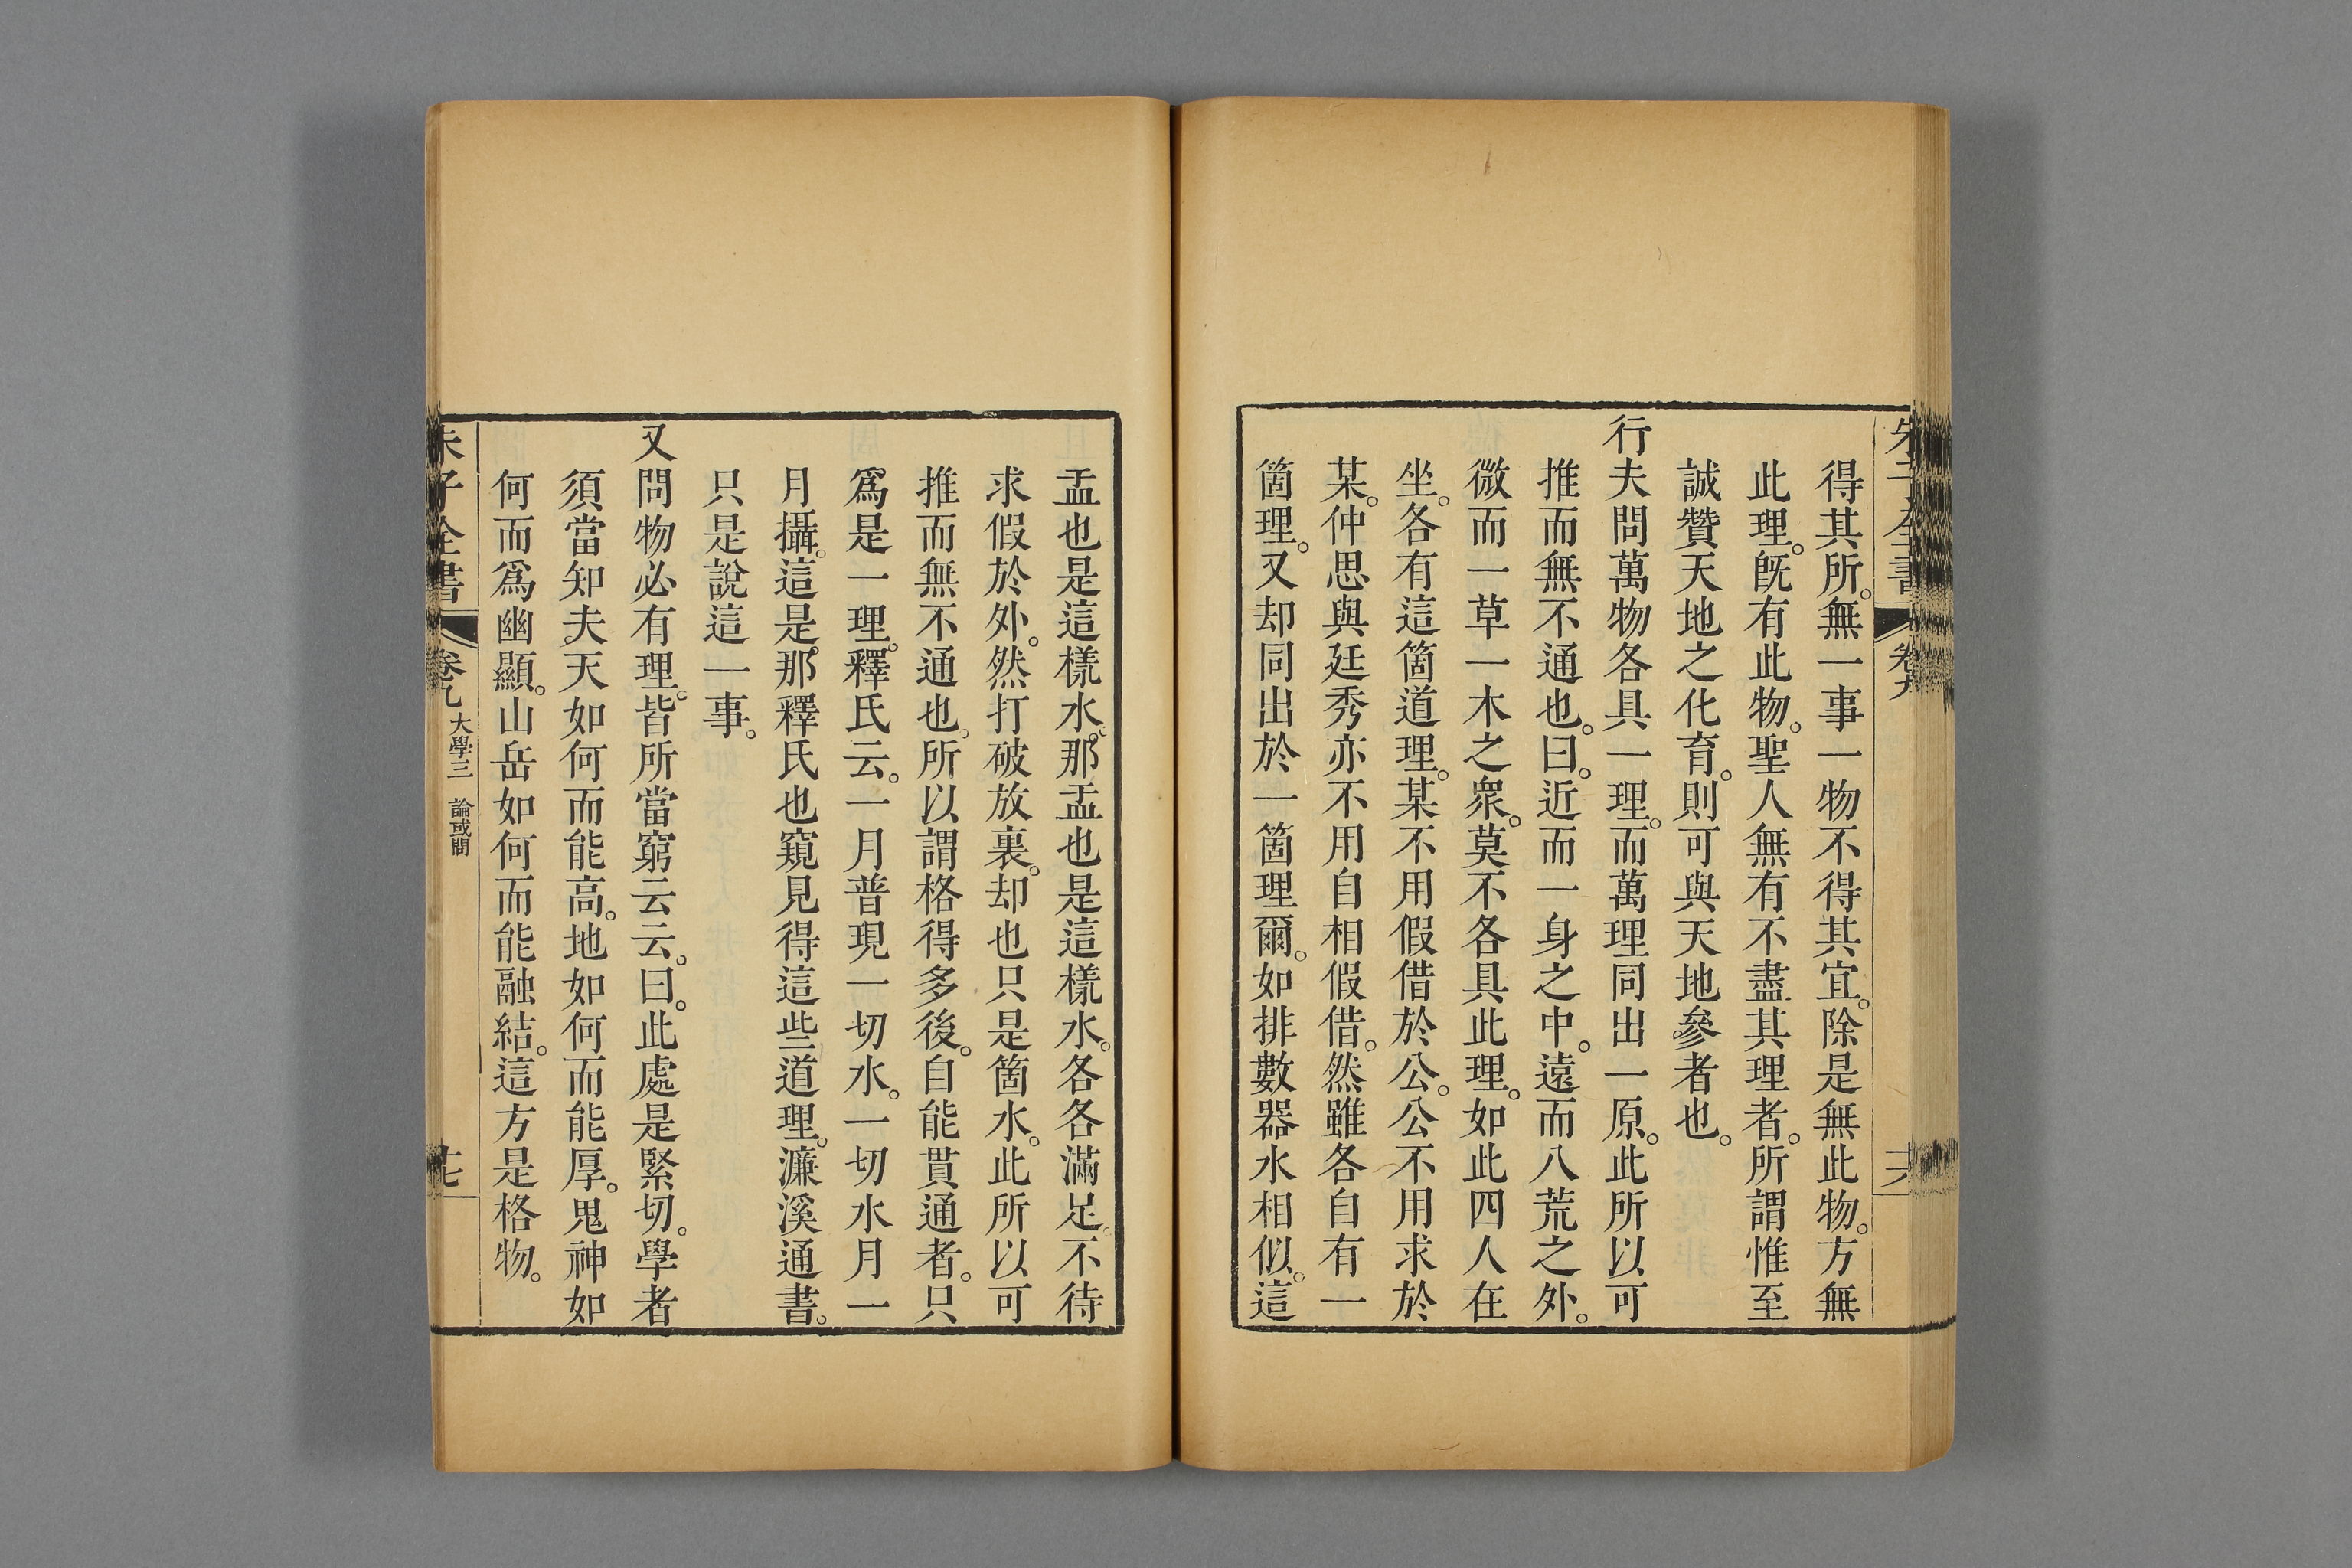 朱子全書 卷九 十六
得其所。無一事一物不得其宜。除是無此物。方無
此理。旣有此物。聖人無有不盡其理者。所謂惟至
誠贊天地之化育。則可與天地參者也。
行夫問萬物各具一理。而萬理同出一原。此所以可
推而無不通也。曰。近而一身之中。遠而八荒之外。
微而一草一木之衆。莫不各具此理。如此四人在
坐。各有這箇道理。某不用假借於公。公不用求於
某。仲思與廷秀亦不用自相假借。然雖各自有一
箇理。又却同出於一箇理爾。如排數器水相似。這
盂也是這樣水。那盂也是這樣水。各各滿足。不待
求假於外。然打破放裏。却也只是箇水。此所以可
推而無不通也。所以謂格得多後。自能貫通者。只
爲是一理。釋氏云。一月普現一切水。一切水月一
月攝。這是那釋氏也窺見得這些道理。濂溪通書。
只是說這一事。
又問物必有理。皆所當窮云云。曰。此處是緊切。學者
須當知夫天如何而能高。地如何而能厚。鬼神如
何而爲幽顯。山岳如何而能融結。這方是格物。
朱子全書 卷九 大學三 論或問 十七